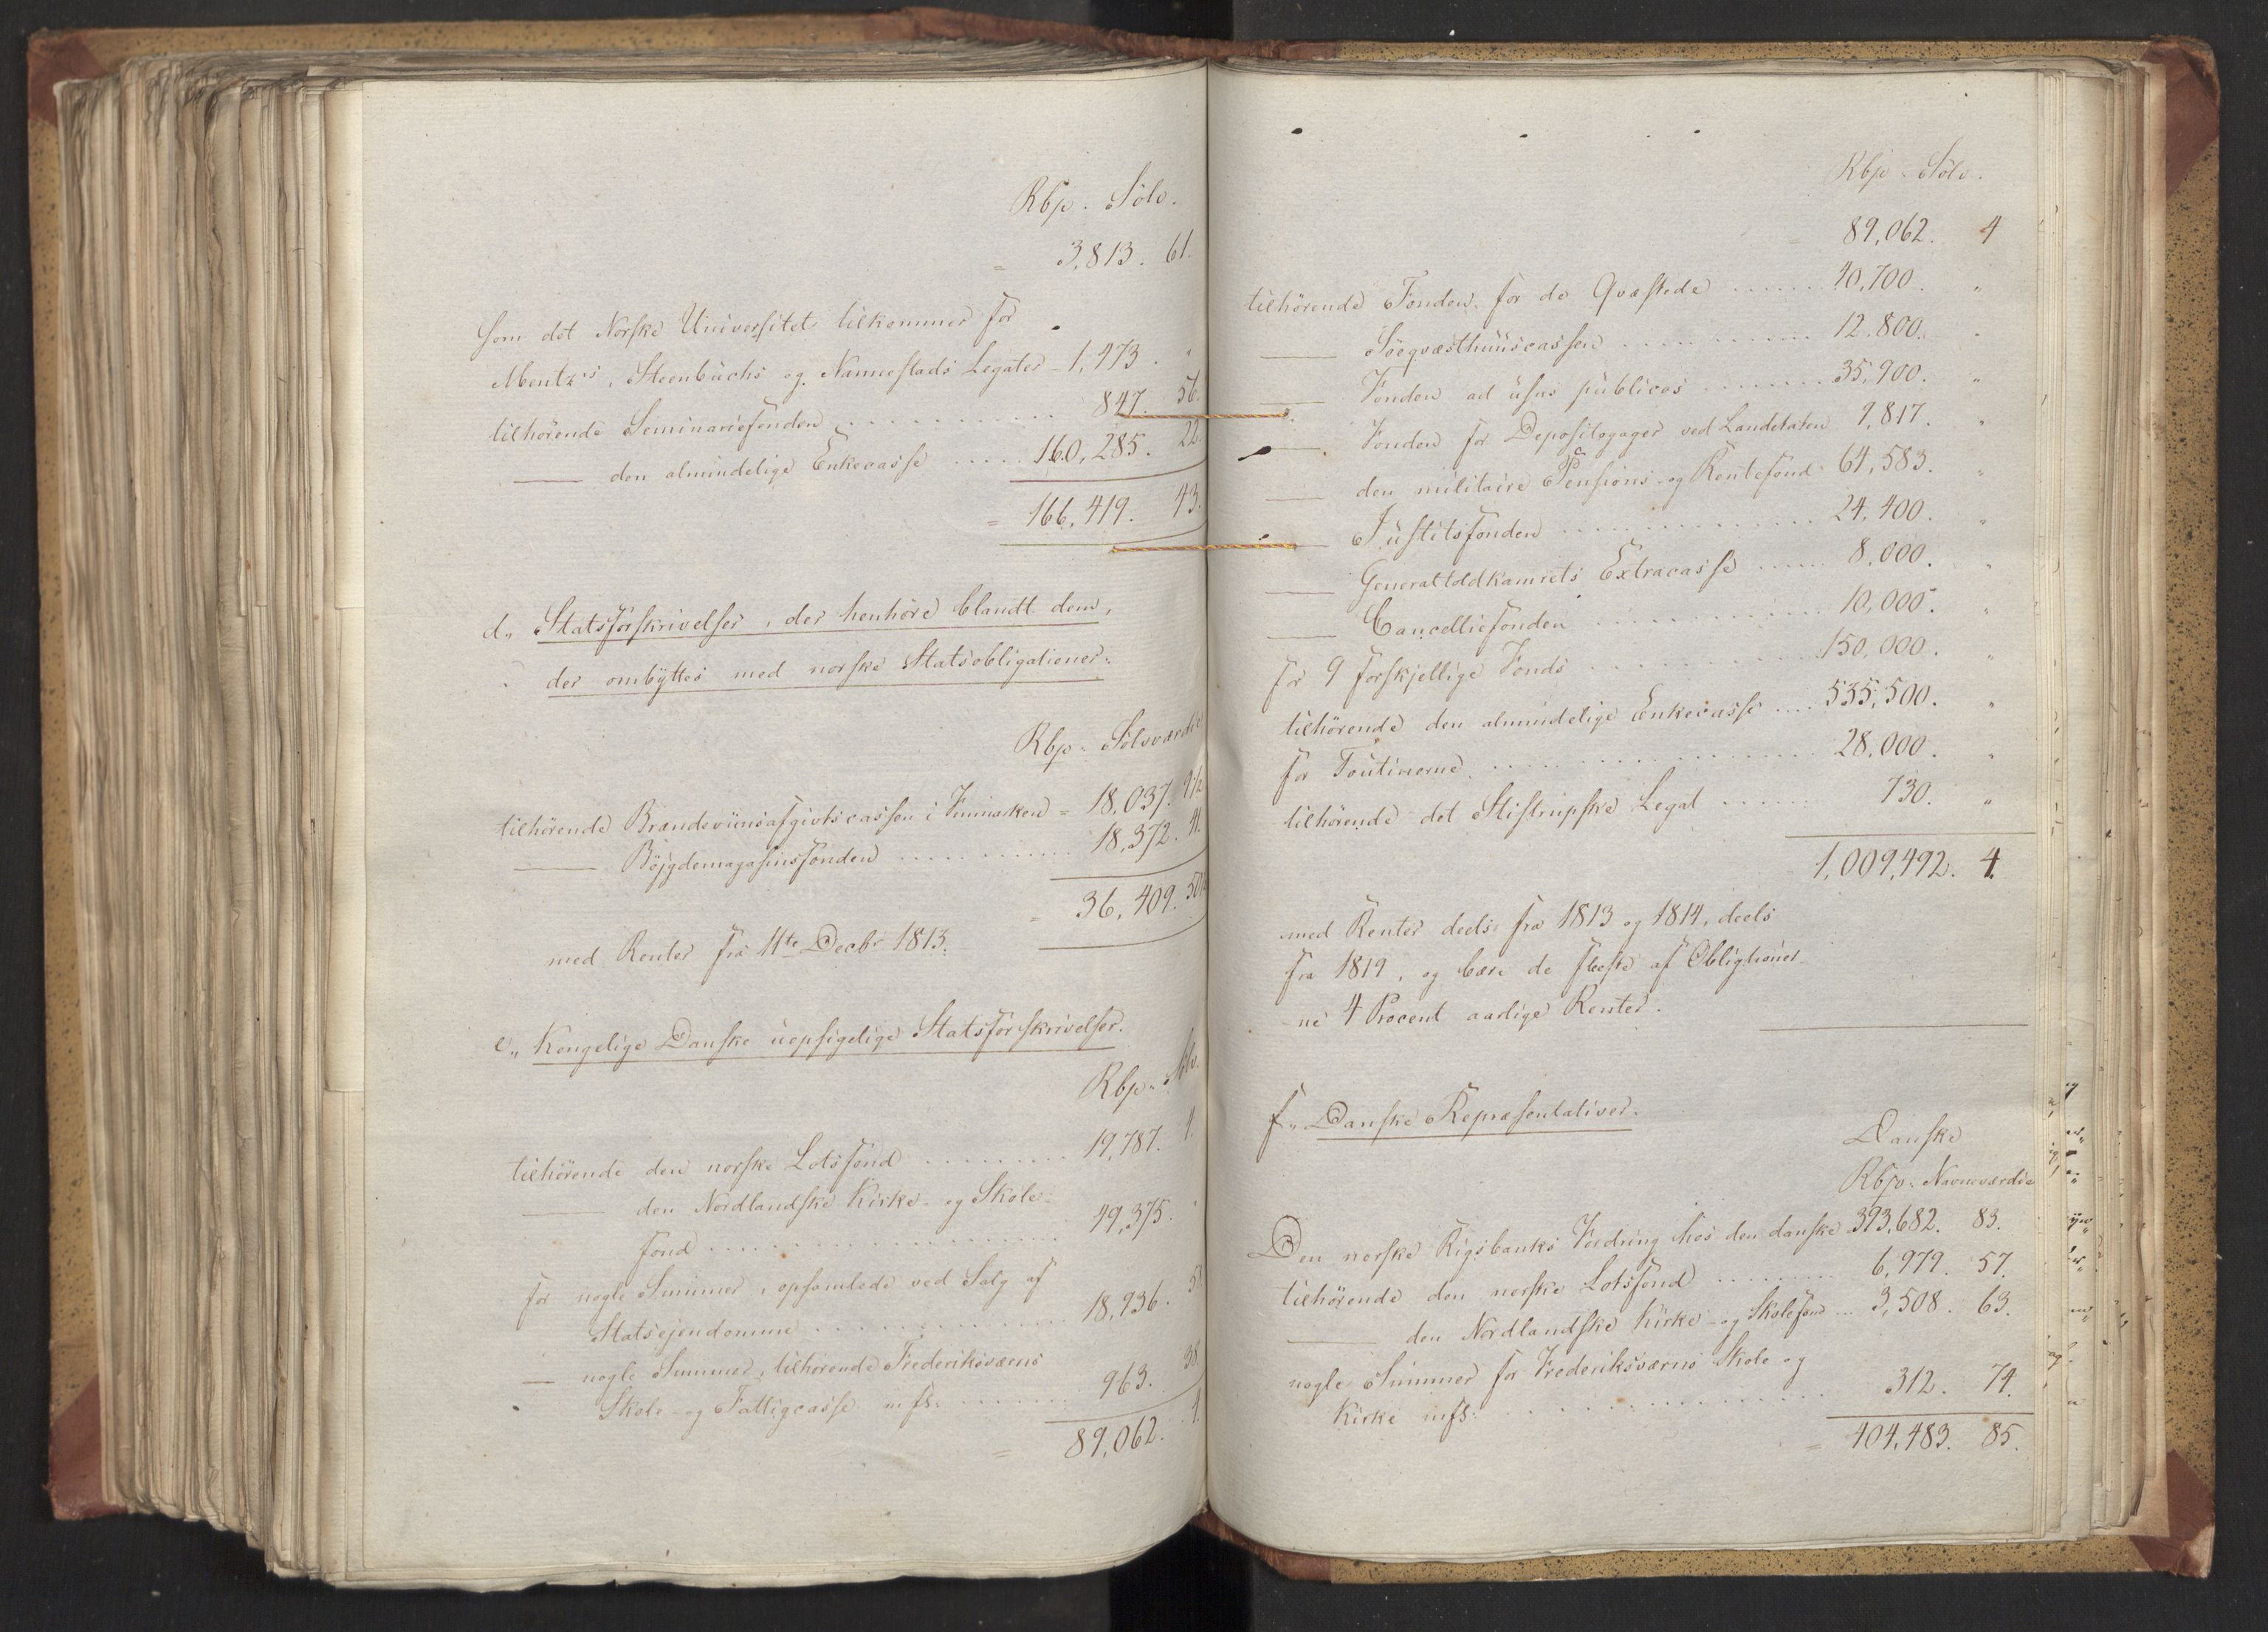 Rbp. Sölv.
= 3,813. 61.
som det Norske Universitet tilkommer for
Mentz's, Steenbuchs og Nannestads Legater - 1,473. "
tilhörende Seminariefonden . . . . . . . . . . 847. 56.
—— den almindelige Enkecasse . . . . . 160,285. 22.
= 166,419. 43.
d„ Statsforskrivelser, der henhöre blandt dem,
der ombyttes med norske Statsobligationer.
Rbp. Sölvværdie
tilhörende Brændeviinsafgivtscassen i Finmarken = 18,037. 9½
—— Böjgdemagasinsfonden . . . . . . . . . . 18,372. 41.
= 36,409. 50½
med Renter fra 11te Decbr 1813.
e„ Kongelige Danske uopsigelige Statsforskrivelser.
Rbp. Sölv.
tilhörende den norske Lotsfond . . . . . . . . . 19,787. 1.
—— den Nordlandske Kirke- og Skole-
fond . . . . . . . . . . . . . . . . . . 49,375. "
for nogle Summer, opsamlede ved Salg af
Statsejendomme . . . . . . . . . . . . . 18,936.
— nogle Summer, tilhörende Frederiksværns
Skole- og Fattigcasse m fl: . . . . . . . 963. 38.
= 89,062. 4.
Rbp. Sölv.
= 89,062. 4
tilhörende Fonden for de Qvæstede . . . . . . 40,700. "
—— Söeqvæsthuuscassen . . . . . . . . . . . 12,800. "
—— Fonden ad usus publicos . . . . . . . . 35,900. "
—— Fonden for Depositogager ved Landetaten 9,817. "
—— den militaire Pensions- og Rentefond 64,583. "
—— Justitsfonden . . . . . . . . . . . . . . . 24,400. "
—— Generaltoldkamrets Extracasse . . . . . 8,000. "
—— Cancelliefonden . . . . . . . . . . . . . 10,000. "
for 9 forskjellige Fonds . . . . . . . . . . . . 150,000. "
tilhörende den almindelige Enkecasse . . . . 535,500. "
for Tontinerne . . . . . . . . . . . . . . . . . 28,000. "
tilhörende det Stistrupske Legat . . . . . . 730. "
1,009,492. 4.
med Renter deels fra 1813 og 1814, deels
fra 1819, og bære de fleste af Obligtioner-
ne 4 Procent aarlige Renter.
f„ Danske Repræsentativer.
Danske
Rbp. Navneværdie
Den norske Rigsbanks Fordring hos den danske 393,682. 83.
tilhörende den norske Lotsfond . . . . . . . . 6,979. 57.
—— den Nordlandske Kirke- og Skolefond . . . 3,508. 63.
nogle Summer for Frederiksværns Skole og
Kirke m fl: . . . . . . . . . . . . . . . . 312. 74.
= 404,483. 85.